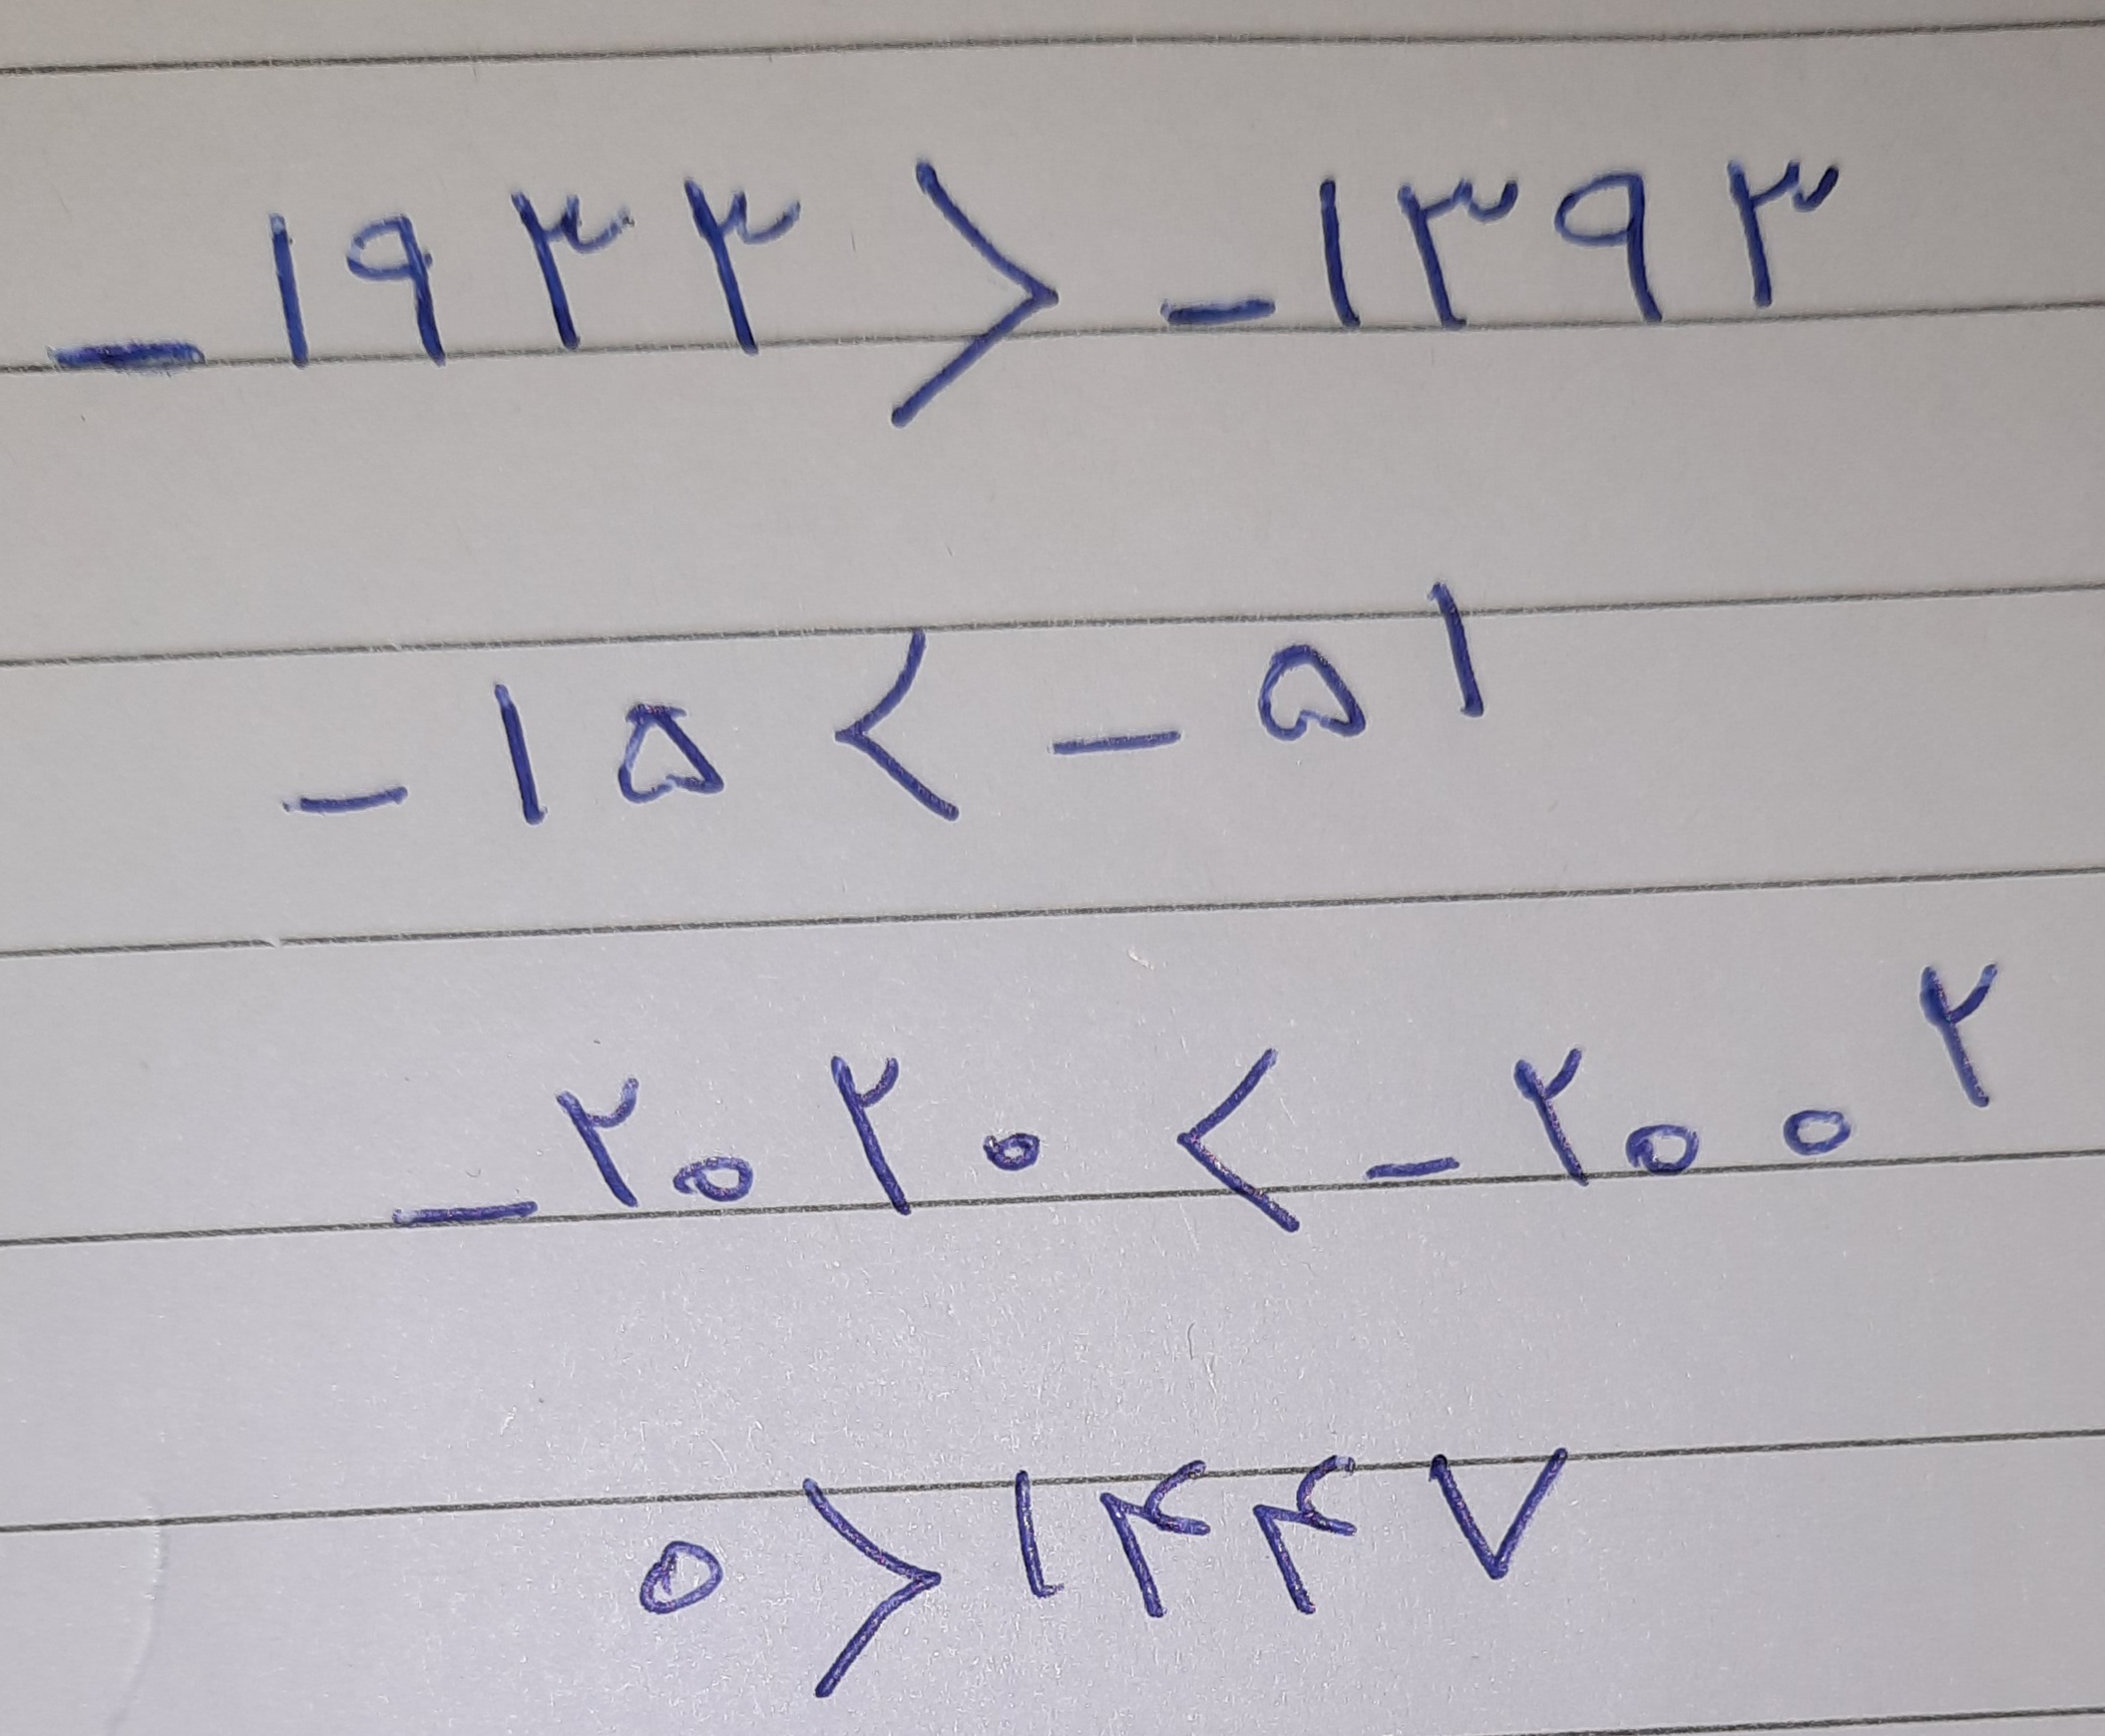 -۱۹۳۳ > -۱۳۹۳
-۱۵ < -۵۱
-۲۰۲۰ < -۲۰۰۲
۰ > ۱۴۴۷